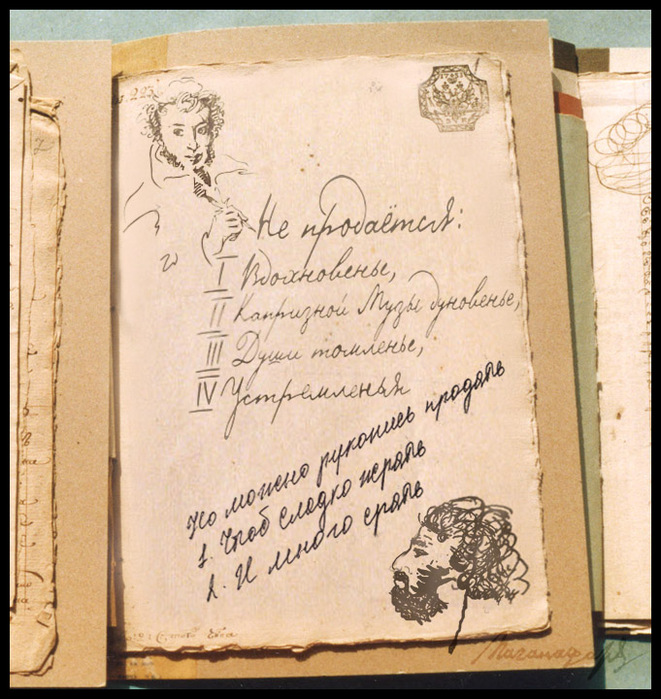 Не продаётся:
I Вдохновенье,
II Капризной Музы дуновенье,
III Души томленье,
IV Устремленья
Но можно рукопись продать
1. Чтоб сладко жрать
2. И много срать